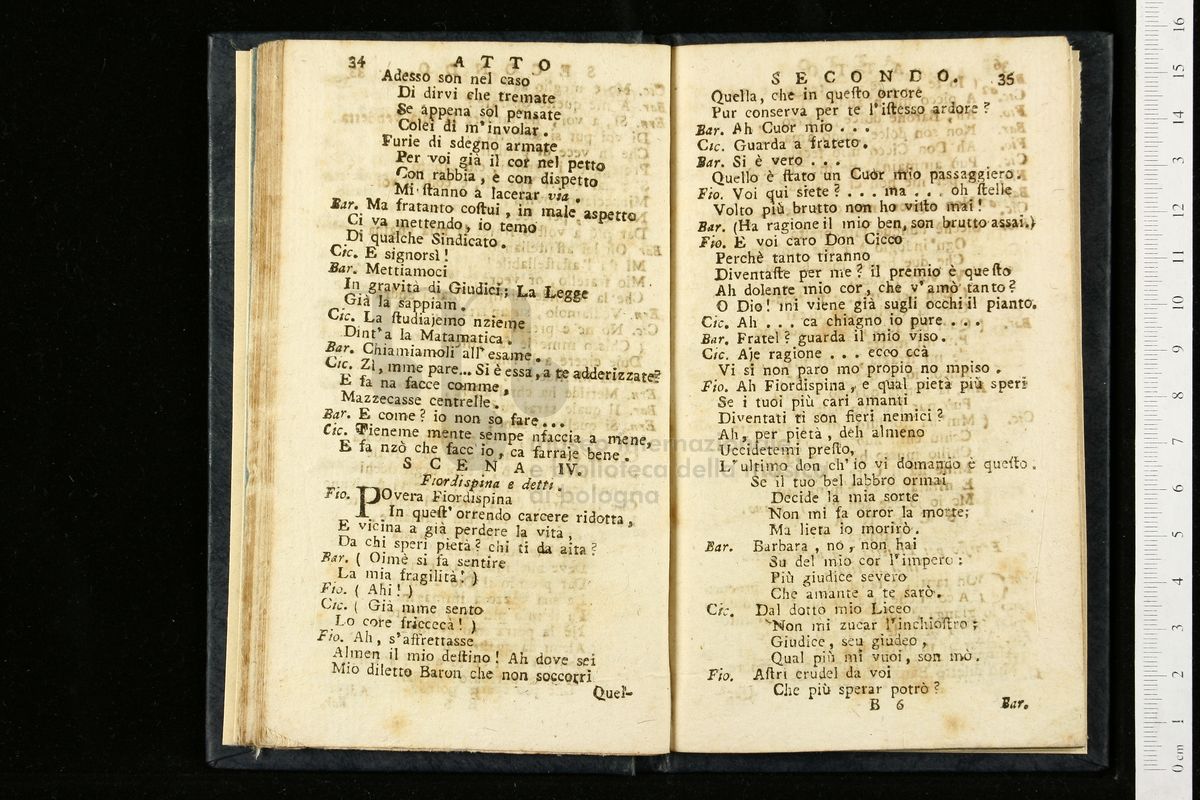 34 ATTO
Adesso son nel caso
Di dirvi che tremate
Se appena sol pensate
Colei di m'involar.
Furie di sdegno armate
Per voi già il cor nel petto
Con rabbia, e con dispetto
Mi stanno a lacerar via.
Bar. Ma fratanto coſtui, in male aspetto
Ci va mettendo, io temo
Di qualche Sindicato.
Cic. E signorsì!
Bar. Mettiamoci
In gravità di Giudici; La Legge
Già la sappiam.
Cic. La ſtudiajemo nzieme
Dint'a la Matamatica.
Bar. Chiamiamoli all'esame.
Cic. Zì, mme pare... Si è essa, a te adderizzate?
E fa na facce comme,
Mazzecasse centrelle.
Bar. E come? io non so fare...
Cic. Tieneme mente sempe nfaccia a mene,
E fa nzò che facc io, ca farraje bene.
SCENA IV.
Fiordispina e detti.
Fio. POvera Fiordispina
In queſt'orrendo carcere ridotta,
E vicina a già perdere la vita,
Da chi speri pietà? chi ti da aita?
Bar. ( Oimè si fa sentire
La mia fragilità! )
Fio. ( Ahi! )
Cic. ( Già mme sento
Lo core friccecà! )
Fio. Ah, s'affrettasse
Almen il mio deſtino! Ah dove sei
Mio diletto Baron che non soccorri
Quel-
SECONDO. 35
Quella, che in queſto orrore
Pur conserva per te l'iſtesso ardore?
Bar. Ah Cuor mio...
Cic. Guarda a frateto.
Bar. Si è vero...
Quello è ſtato un Cuor mio passaggiero.
Fio. Voi qui siete?... ma... oh ſtelle
Volto più brutto non ho viſto mai!
Bar. (Ha ragione il mio ben, son brutto assai.)
Fio. E voi caro Don Cicco
Perchè tanto tiranno
Diventaſte per me? il premio è queſto
Ah dolente mio cor, che v'amò tanto?
O Dio! mi viene già sugli occhi il pianto.
Cic. Ah... ca chiagno io pure...
Bar. Fratel? guarda il mio viso.
Cic. Aje ragione... ecco ccà
Vi si non paro mo propio no mpiso.
Fio. Ah Fiordispina, e qual pietà più speri
Se i tuoi più cari amanti
Diventati ti son fieri nemici?
Ah, per pietà, deh almeno
Uccidetemi preſto,
L'ultimo don ch'io vi domando è queſto.
Se il tuo bel labbro ormai
Decide la mia sorte
Non mi fa orror la morte;
Ma lieta io morirò.
Bar. Barbara, no, non hai
Su del mio cor l'impero:
Più giudice severo
Che amante a te sarò.
Cic. Dal dotto mio Liceo
Non mi zucar l'inchioſtro;
Giudice, seu giudeo,
Qual più mi vuoi, son mò.
Fio. Aſtri crudel da voi
Che più sperar potrò?
B 6 Bar.